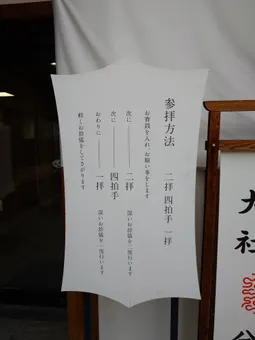 参拝方法 二拝 四拍手 一拝
お賽銭を入れ、お願い事をします
次に 二拝 深いお辞儀を二度行います
次に 四拍手
おわりに 一拝 深いお辞儀を一度行います
軽くお辞儀をしてさがります
大社